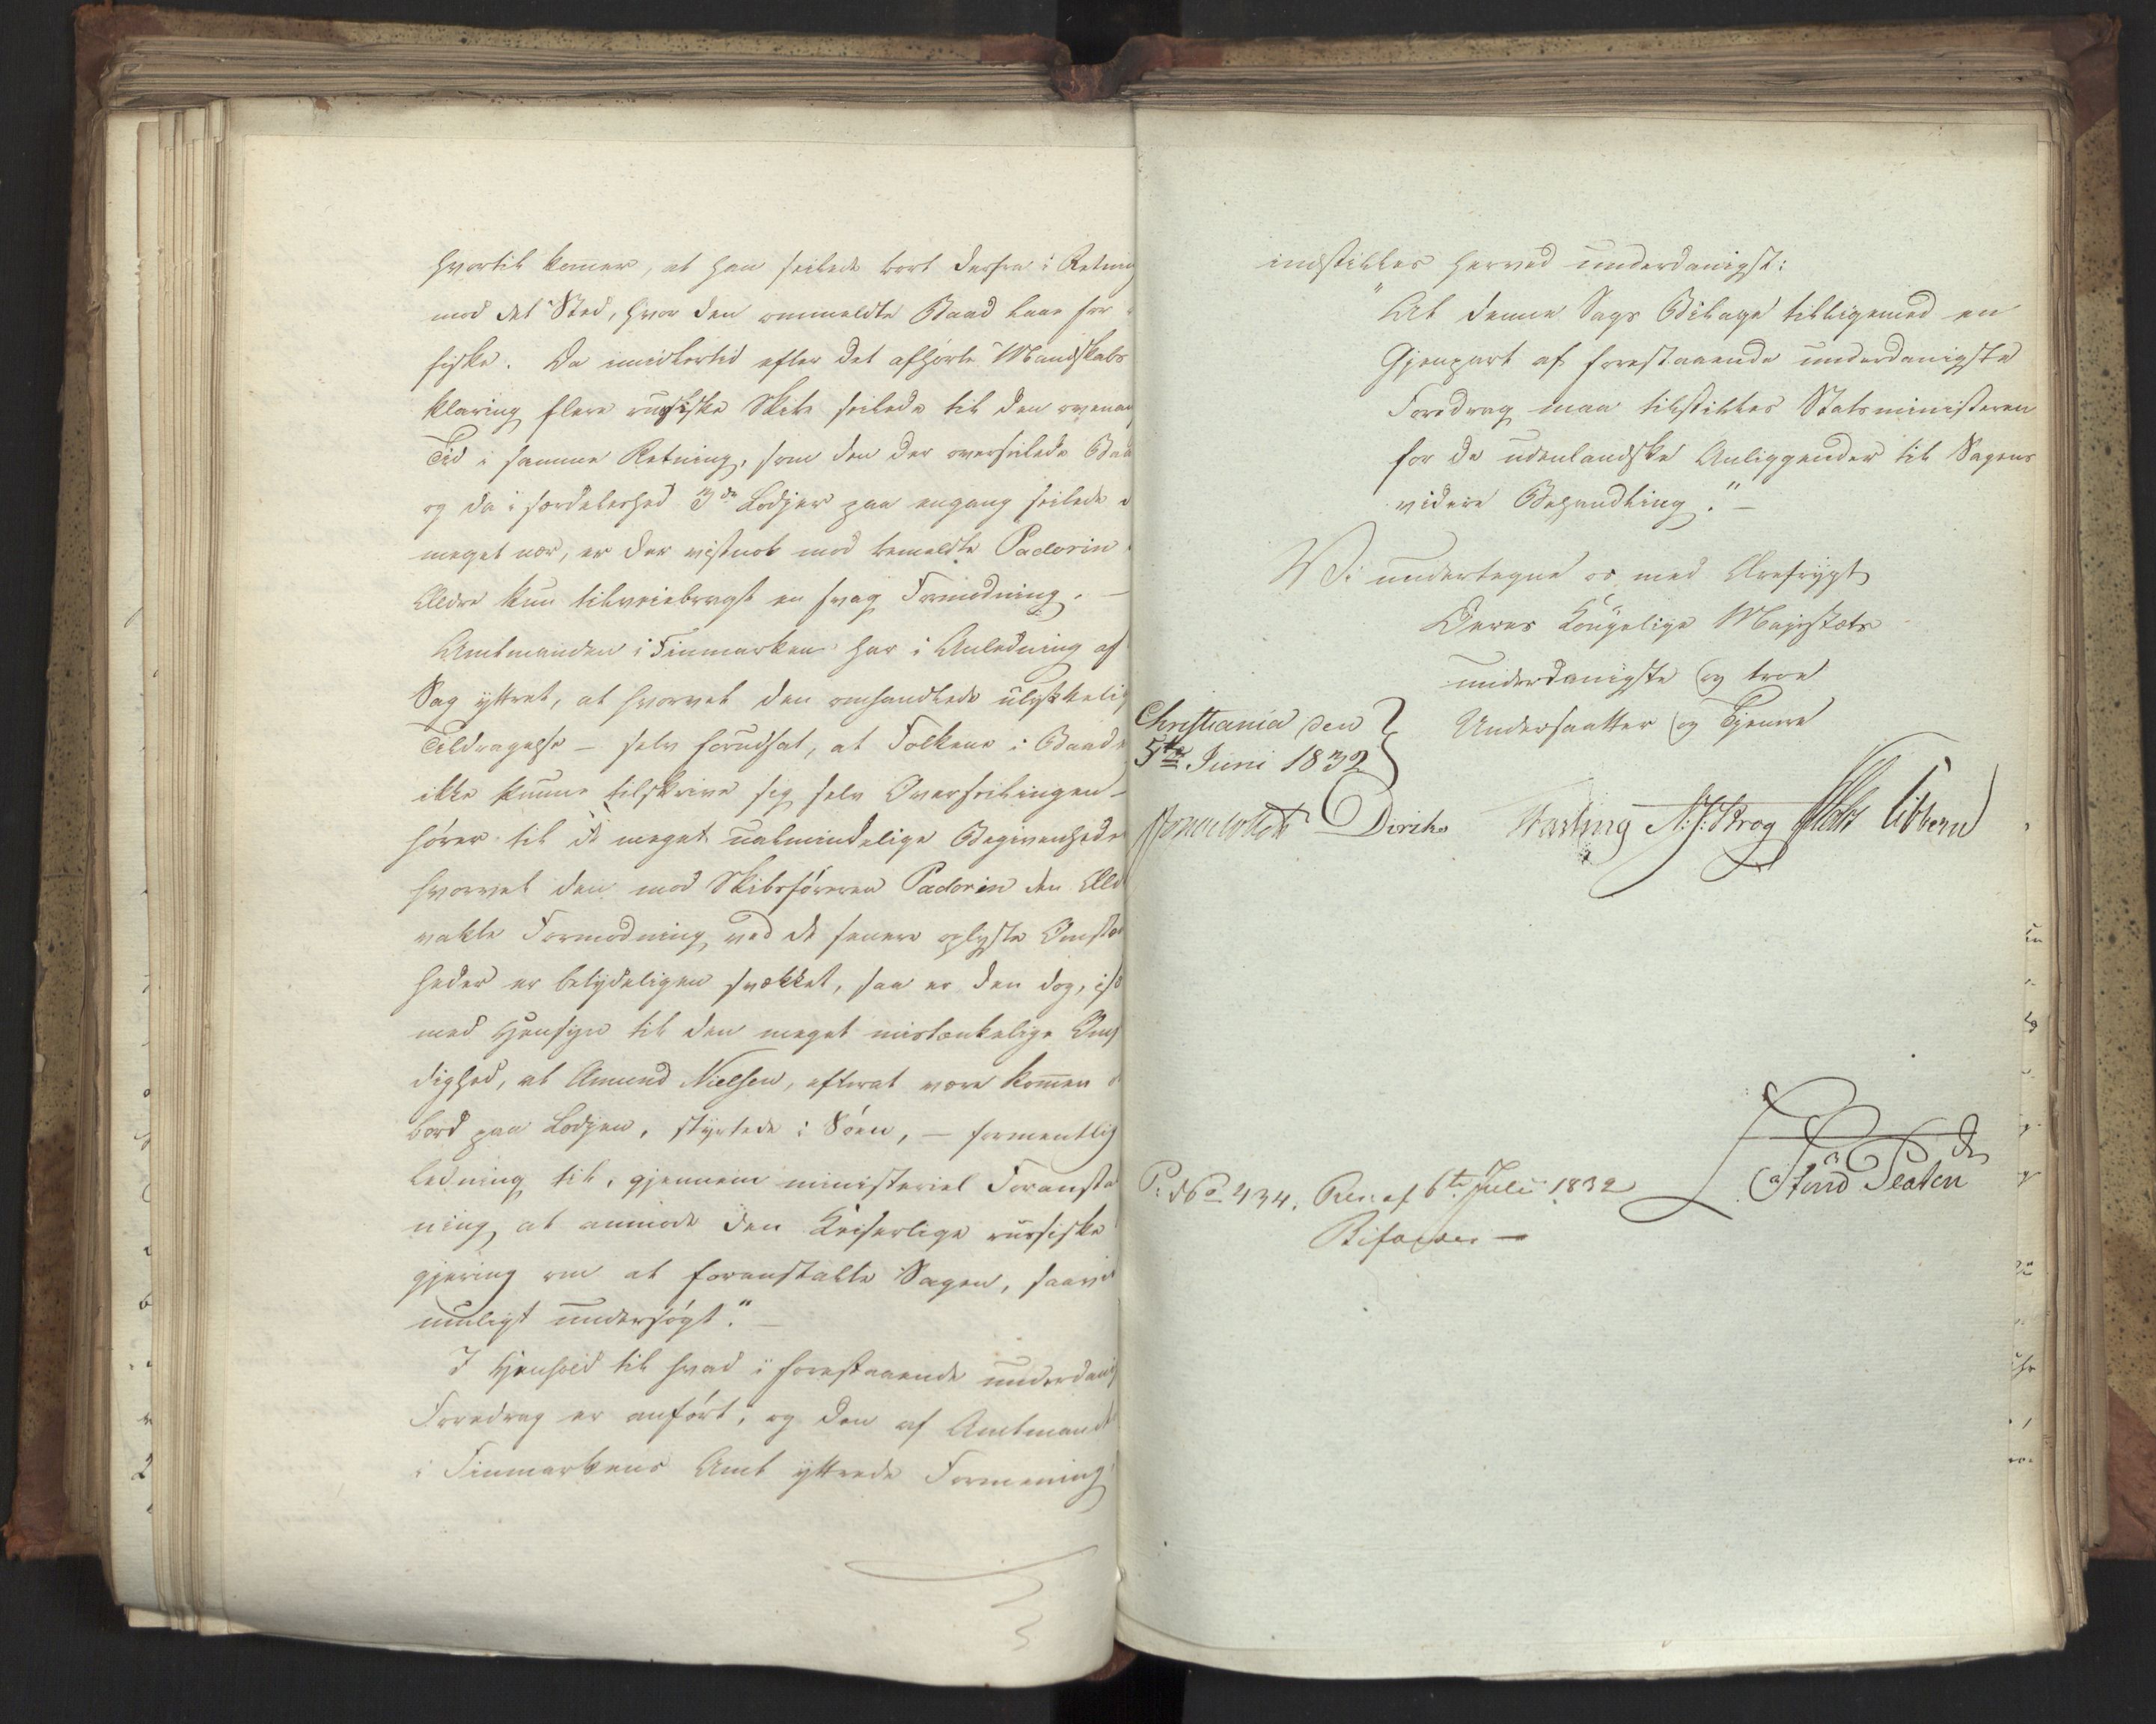 hvortil kommer, at han seilede bort derfra i Retning
mod det Sted, hvor den ommeldte Baad laae for
fiske. Da imidlertid efter det afhørte Mandskabs
klaring flere russiske Skibe seilede til den ovenan
Tid i samme Retning, som den der overseilede Baa
og da i særdeleshed 3de Lodjer paa engang seilede
meget nær, er der vistnok mod bemeldte Padorin
Alene kun tilveiebragt en svag Formodning. —
Amtmanden i Finmarken har i Anledning af
Sag yttret, at hvorvel den omhandlede ulykkelig
Tildragelse — selv forudsat, at Folkene i Baade
ikke kunne tilskrive sig selv Overseilingen —
hører til de meget ualmindelige Begivenheder
hvorvel den mod Skibsføreren Padorin den
vakte Formodning ved de senere oplyste Omstæn
heder er betydeligen svækket, saa er den dog, is
med Hensyn til den meget mistænkelige Oms
dighed, at Amund Nielsen, efterat være kommen
bord paa Lodjen, styrtede i Søen, — formentlig
ledning til, gjennem ministeriel Foransta
ning, at anmode den Keiserlige russiske
gjering om at foranstalte Sagen, saavi
muligt undersøgt." —
I Henhold til hvad i forestaaende underdanig
Foredrag er anført, og den af Amtmand
i Finmarkens Amt yttrede Formening
indstilles herved underdanigst:
"At denne Sags Bilage tilligemed en
Gjenpart af forestaaende underdanigste
Foredrag maa tilstilles Statsministeren
for de udenlandske Anliggender til Sagens
videre Behandling." —
Vi undertegne os med Ærefrygt
Deres Kongelige Majestæts
underdanigste og troe
Undersaatter og Tjenere
Christiania den
5te Juni 1832
Diriks Fasting N: J: Krog Holst Vibe
P: No 434. Res: af 6te Juli 1832
Bifaldes —
Platen